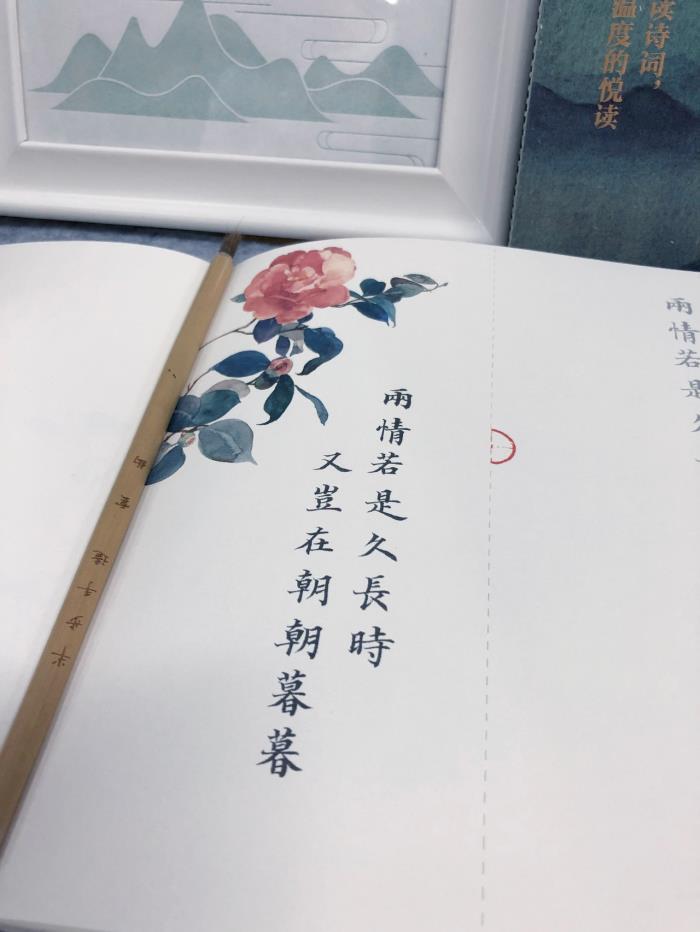 读诗词，
温度的悦读
兩情若是久長時
又豈在朝朝暮暮
兩情若是久